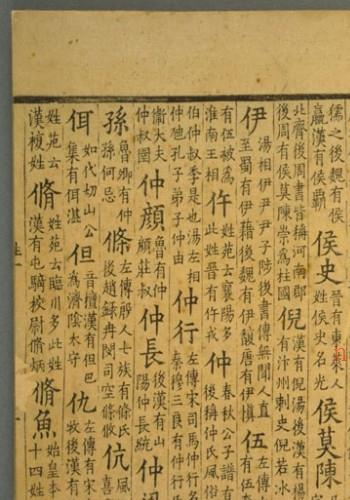 儒之後魏有侯
嬴漢有侯霸
侯史
晉有東萊人
姓侯史名光
侯莫陳
北齊後周書皆稱河南郡
後周有侯莫陳崇為柱國
倪
漢有倪湯後漢有倪
有汴州刺史倪若冰
伊
湯相伊尹尹子陟後書傳無聞人直
至蜀有伊籍後魏有伊馛唐有伊慎
伍
左傳
有伍
有伍被為
淮南王相
仵
姓苑云襄陽多
此姓晉有仵戎
仲
春秋公子譜
後稱仲氏風俗
伯仲叔季是也湯左相
仲虺孔子弟子仲由
仲行
左傳宋司馬仲行名
秦穆三良有仲行
衞大夫
仲叔圉
仲顏
魯有仲
顏莊叔
仲長
後漢有山
陽仲長統
仲
孫
魯卿有仲
孫何忌
條
左傳殷人七族有條氏
後趙錄冉閔司空條攸
伉
風
喜
佴
如代切山公
集有佴湛
但
音檀漢有但巴
為濟陰太守
仇
左傳有宋
牧後漢有
姓苑云
漢複姓
脩
姓苑云臨川多此姓
漢有屯騎校尉脩炳
脩魚
始皇本
十四姓